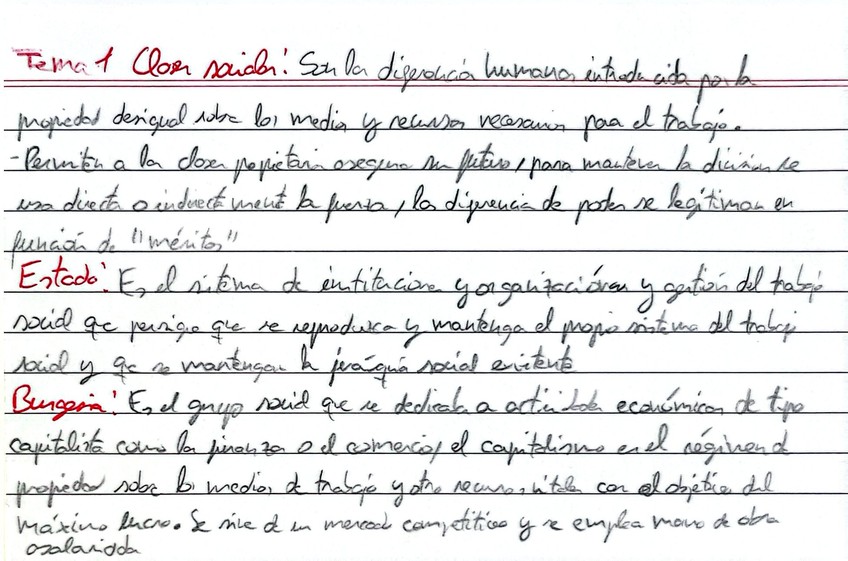 Tema 1 Clases sociales: Son las diferencias humanas introducidas por la
propiedad desigual sobre los medios y recursos necesarios para el trabajo.
-Permiten a las clases propietarias asegurar su futuro, para mantener la división se
usa directa o indirectament la fuerza, las diferencias de poder se legitiman en
función de "méritos"
Estado: Es el sistema de instituciones y organizaciónes y gestión del trabajo
social que persigue que se reproduzca y mantenga el propio sistema del trabajo
social y que se mantengan la jerarquía social existente
Burgesia: Es el grupo social que se dedica a actividades económicas de tipo
capitalista como las finanzas o el comercio, el capitalismo es el régimen d
propiedad sobre los medios de trabajo y otros recursos vitales con el objetivo del
máximo lucro. Se sirve de un mercado competitivo y se emplea mano de obra
asalariada